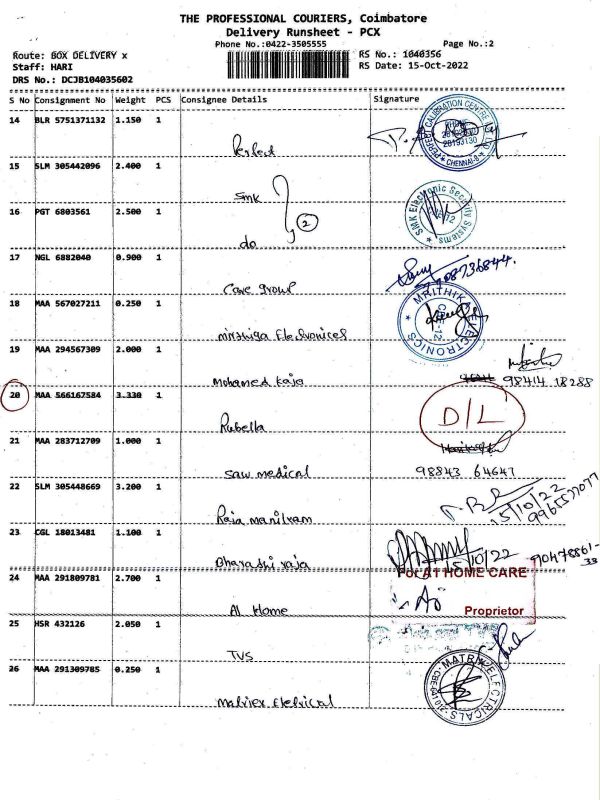 THE PROFESSIONAL COURIERS, Coimbatore
Delivery Runsheet - PCX
Phone No.:0422-3505555
Page No.:2
Route: BOX DELIVERY x
RS No.: 1040356
Staff: HARI
RS Date: 15-Oct-2022
DRS No.: DCJB104035602
S No Consignment No Weight PCS Consignee Details Signature
14 BLR 5751371132 1.150 1
Perfect
PERFECT CALIBRATION CENTRE
CHENNAI-8
15 SLM 305442096 2.400 1
SMK
16 PGT 6803561 2.500 1
2
SMK Electronic Security Systems
do
17 NGL 6882040 0.900 1
Care group
08736844.
18 MAA 567027211 0.250 1
MRITHIK ELECTRONICS
CBE-12
19 MAA 294567309 2.000 1
Mohamed Kaja
98414 18288
20 MAA 566167584 3.330 1
Rubella
D/L
21 MAA 283712709 1.000 1
Saw medical
98843 64647
22 SLM 305448669 3.200 1
Raja manikram
15/10/22
23 CGL 18013481 1.100 1
Bharathi raja
15/10/22
24 MAA 291809781 2.700 1
For AT HOME CARE
At Home
Proprietor
25 HSR 432126 2.050 1
TVS
26 MAA 291309785 0.250 1
MATRIX ELECTRICALS